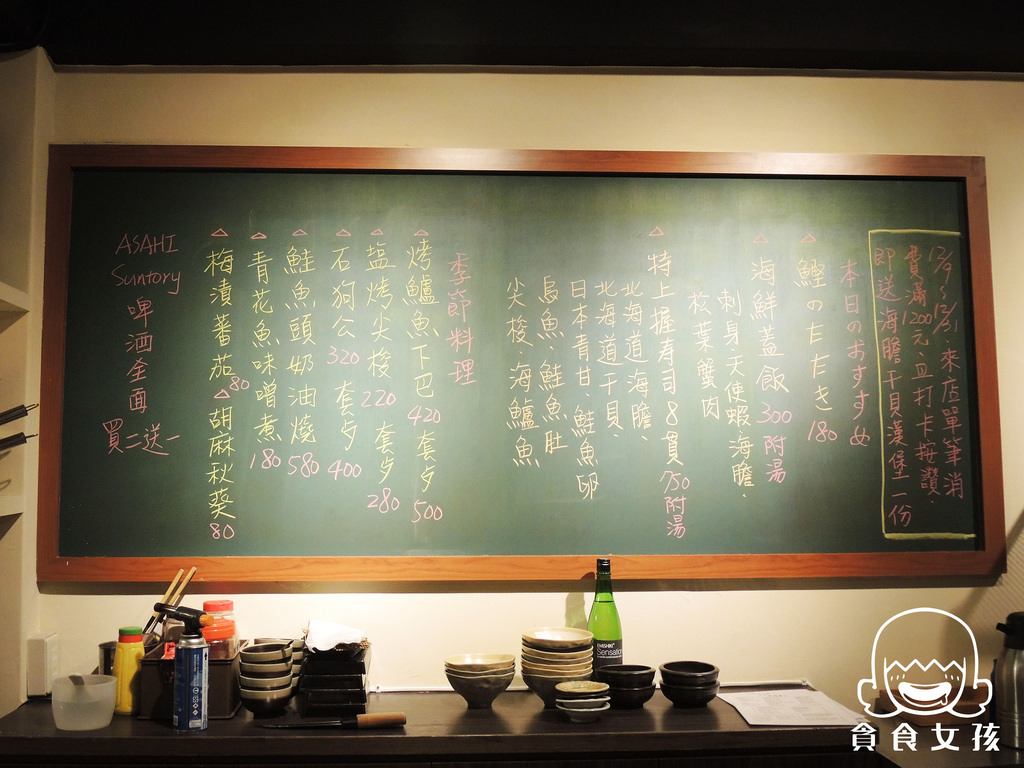 12/9~12/31.來店單筆消
費滿1200元,且打卡按讚.
即送海膽干貝漢堡一份
本日のおすすめ
△鰹のたたき180
△海鮮蓋飯300附湯
刺身.天使蝦.海膽.
松葉蟹肉
△特上握寿司8貫750附湯
北海道海膽、
北海道干貝、
日本青甘、鮭魚卵
烏魚 鮭魚肚
尖梭.海鱸魚
季節料理
△烤鱸魚下巴420套歺500
△塩烤尖梭220套歺280
△石狗公320套歺400
△鮭魚頭奶油燒580
△青花魚味噌煮180
△梅漬蕃茄80△胡麻秋葵80
ASAHI
Suntory
啤酒全面
買二送一
Sensation
貪食女孩